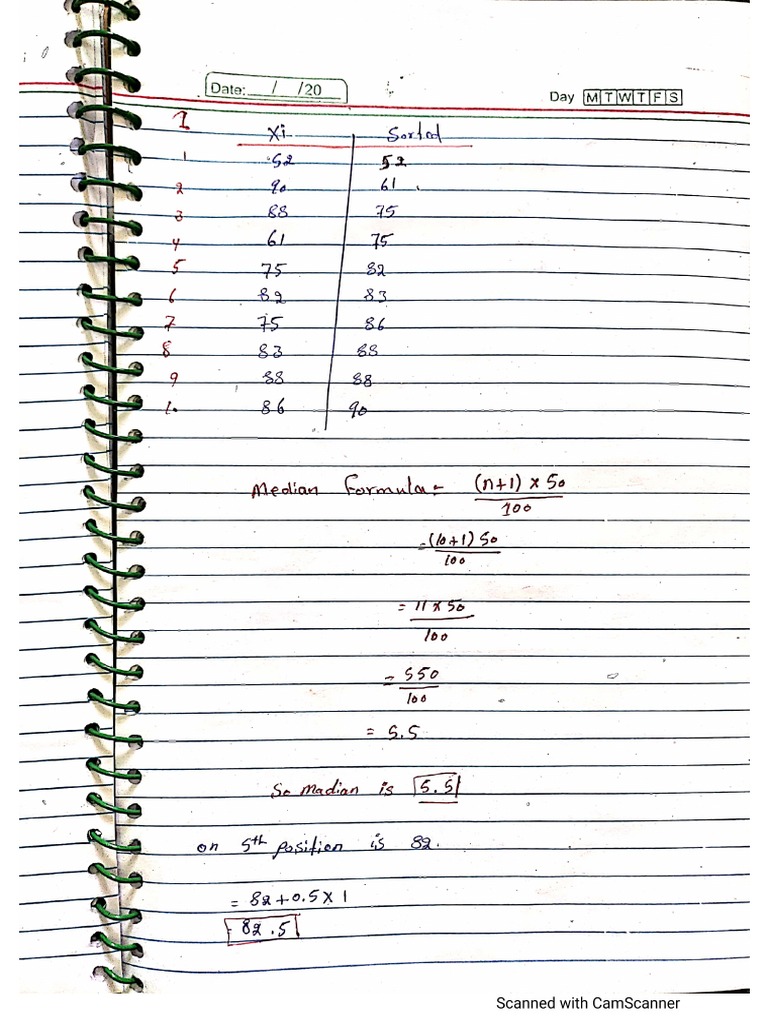 Date: / /20
Day M T W T F S
I Xi Sorted
1 52 52
2 90 61
3 88 75
4 61 75
5 75 82
6 82 83
7 75 86
8 83 88
9 88 88
10 86 90
Median Formula = (n+1) x 50
100
= (10+1) 50
100
= 11 x 50
100
= 550
100
= 5.5
So Madian is 5.5
on 5th position is 82.
= 82 + 0.5 x 1
82.5
Scanned with CamScanner